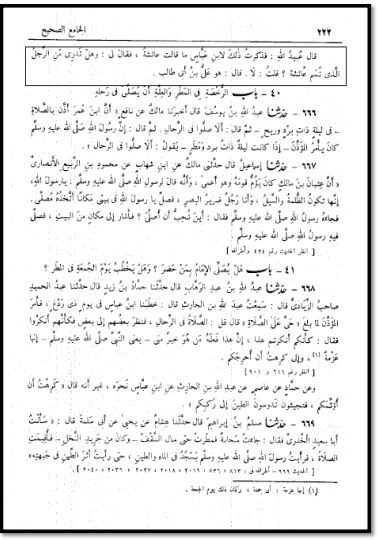 ٢٢٢ الجامع الصحيح
قال عُبيدُ اللهِ : فذكرتُ ذلكَ لابنِ عبّاسٍ ما قالت عائشةُ ، فقالَ لى : وهل تَدرِى مَنِ الرَّجلُ
الَّذى لم تُسمِّ عائشة ؟ قلتُ : لا . قال : هو علىُّ بنُ أبى طالبٍ .
٤٠ – باب الرُّخصةِ فى المطرِ والعِلَّةِ أن يُصلِّىَ فى رَحلهِ
٦٦٦ – حدّثنا عبدُ اللهِ بنُ يوسُفَ قال أخبرَنا مالكٌ عن نافعٍ « أنَّ ابنَ عمرَ أذَّن بالصَّلاةِ
– فى ليلةٍ ذاتِ بردٍ وريحٍ – ثم قال : ألا صلُّوا فى الرِّحالِ . ثم قال : إنَّ رسولَ اللهِ صلَّى الله عليه وسلَّم
كانَ يأمرُ المؤذِّنَ – إذا كانت ليلةٌ ذاتُ بَردٍ ومَطرٍ – يقولُ : ألا صلُّوا فى الرِّحالِ » .
٦٦٧ – حدّثنا إسماعيلُ قال حدَّثنى مالكٌ عنِ ابنِ شهابٍ عن محمودِ بنِ الرَّبيعِ الأنصارىِّ
« أنَّ عِتبانَ بنَ مالكٍ كان يَؤُمُّ قومَهُ وهو أعمى ، وأنَّه قالَ لرسولِ اللهِ صلَّى الله عليه وسلَّم : يارسولَ اللهِ،
إنَّها تكونُ الظُّلمةُ والسَّيلُ ، وأنا رَجلٌ ضَريرُ البصرِ ، فصلِّ يا رسولَ اللهِ فى بيتى مكانًا أتَّخِذُهُ مُصلَّى .
فجاءَهُ رسولُ اللهِ صلَّى الله عليه وسلَّم فقال : أينَ تُحبُّ أن أُصلِّىَ ؟ فأشارَ إلى مكانٍ منَ البيتِ ، فصلَّى
فيهِ رسولُ اللهِ صلَّى الله عليهِ وسلَّم .
[ انظر الحديث ٤٢٤ وأطرافه ]
٤١ – باب هل يُصلِّى الإمامُ بمَنْ حَضرَ ؟ وهل يَخطُبُ يومَ الجمعةِ فى المطرِ ؟
٦٦٨ – حدّثنا عبدُ اللهِ بنُ عبدِ الوهّابِ قال حدَّثنا حمّادُ بنُ زيدٍ قال حدَّثنا عبدُ الحميدِ
صاحبُ الزِّيادىِّ قال : سَمِعتُ عبدَ اللهِ بنَ الحارثِ قال : خطبَنا ابنُ عبّاسٍ فى يومٍ ذى رَدْغٍ ، فأمرَ
المؤذِّنَ لمّا بلغَ « حىَّ علَى الصَّلاةِ » قال قل : الصَّلاةُ فى الرِّحالِ ، فنظرَ بعضُهم إلى بعضٍ فكأنَّهم أنكروا
فقال : كأنَّكم أنكرتم هذا ، إنَّ هذا فعلَهُ مَن هُوَ خيرٌ منى – يعنى النَّبىَّ صلَّى الله عليه وسلَّم – إنها
عَزْمةٌ (١) ، وإنى كرهتُ أن أُحرِجَكم .
[ انظر الحديث ٦١٦ و ٩٠١ ]
وعن حمّادٍ عن عاصمٍ عن عبدِ اللهِ بنِ الحارثِ عنِ ابنِ عبّاسٍ نَحوَه ، غيرَ أنه قال « كَرِهتُ أن
أُؤَثِّمَكم ، فتجيئونَ تَدوسونَ الطينَ إلى رُكَبِكم » .
٦٦٩ – حدّثنا مسلمُ بنُ إبراهيمَ قال حدَّثنا هشامٌ عن يحيى عن أبى سَلمةَ قال : « سَألتُ
أبا سعيدٍ الخُدرىَّ فقال : جاءت سَحابةٌ فمَطرَتْ حتى سال السَّقفُ – وكانَ من جَريدِ النَّخلِ – فأُقيمَتِ
الصَّلاةُ ، فرأيتُ رسولَ اللهِ صلَّى الله عليهِ وسلَّم يَسجُدُ فى الماءِ والطينِ ، حتى رأيتُ أثرَ الطِّينِ فى جَبهتهِ»
[ الحديث ٦٦٩ – أطرافه فى : ٨١٣ ، ٨٣٦ ، ٢٠١٦ ، ٢٠١٨ ، ٢٠٢٧ ، ٢٠٣٦ ، ٢٠٤٠ ]
(١) إنها عزمة : أى جمعة ، وكان ذلك يوم الجمعة .